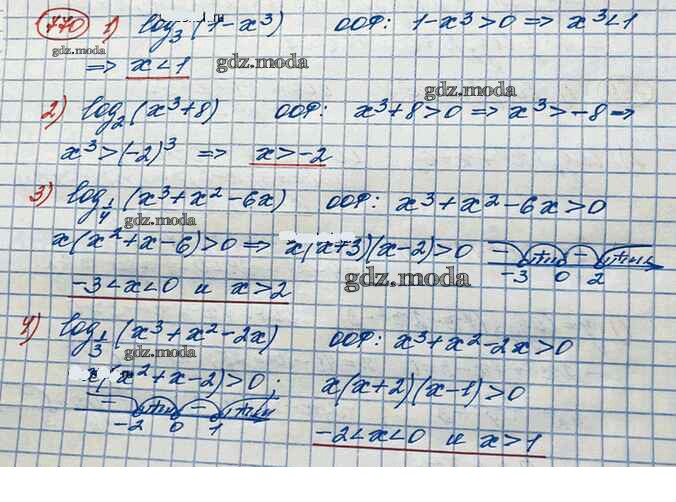 770 1) log₃(1-x³) ООФ: 1-x³>0 ⇒ x³<1
⇒ x<1
gdz.moda
gdz.moda
2) log₂(x³+8) ООФ: x³+8>0 ⇒ x³>-8 ⇒
gdz.moda
x³>(-2)³ ⇒ x>-2
gdz.moda
3) log_{1/4}(x³+x²-6x) ООФ: x³+x²-6x>0
gdz.moda
x(x²+x-6)>0 ⇒ x(x+3)(x-2)>0 - - -3 0 2
gdz.moda
-3<x<0 и x>2
4) log_{1/3}(x³+x²-2x) ООФ: x³+x²-2x>0
gdz.moda
x(x²+x-2)>0; x(x+2)(x-1)>0
- - -2 0 1
-2<x<0 и x>1
gdz.moda